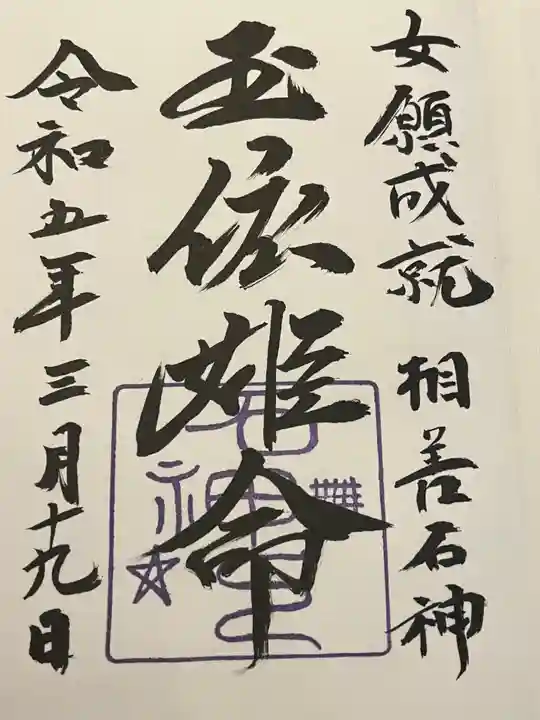 女願成就 相善石神
玉依姫命
令和五年三月十九日
石神